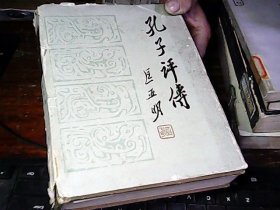 孔子评傳
匡亚明